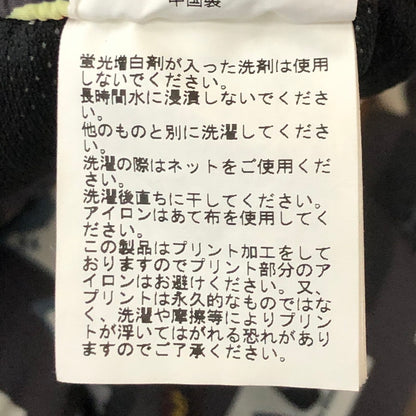 中国製
蛍光増白剤が入った洗剤は使用
しないでください。
長時間水に浸漬しないでくださ
い。
他のものと別に洗濯してくださ
い。
洗濯の際はネットをご使用くだ
さい。
洗濯後直ちに干してください。
アイロンはあて布を使用してく
ださい。
この製品はプリント加工をして
おりますのでプリント部分のア
イロンはお避けください。又、
プリントは永久的なものではな
く、洗濯や摩擦等によりプリン
トが浮いてはがれる恐れがあり
ますのでご了承ください。